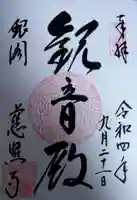 奉拝
令和四年
九月二十一日
観音殿
銀閣
慈照寺